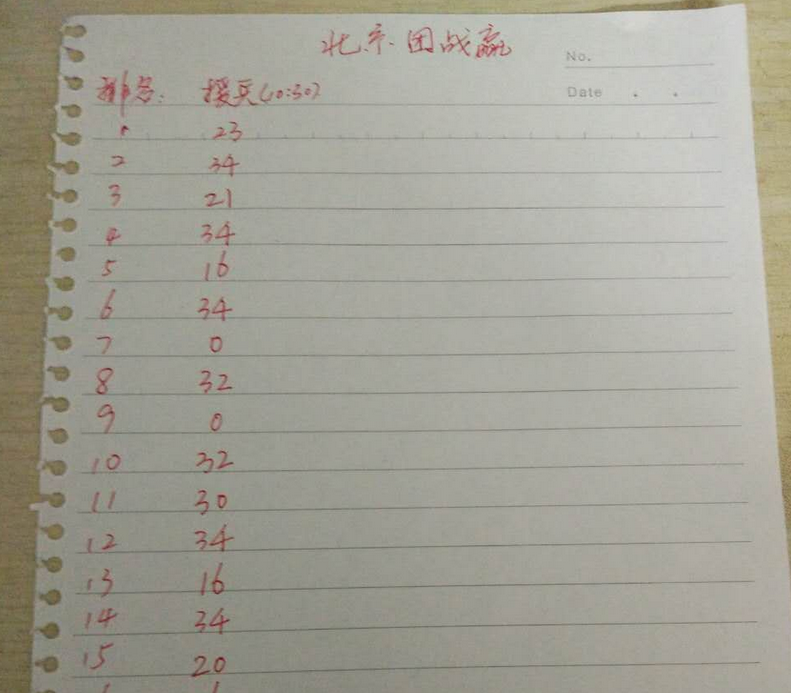 北京团战赢
No.
排名: 援兵(10:30)
Date . .
1 23
2 34
3 21
4 34
5 16
6 34
7 0
8 32
9 0
10 32
11 30
12 34
13 16
14 34
15 20